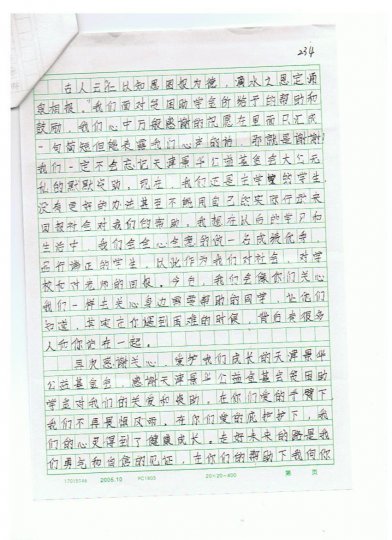 234
古人云:以知恩图报为德,滴水之恩定涌
泉相报。我们面对贫困助学金所给予的帮助和
鼓励,我们心中万般感谢的祝愿在里面只汇成
一句简短但能表露我们心声的话,那就是谢谢
我们一定不会忘记天津景华公益基金会大公无
私的默默支助,现在,我们还是在学校的学生
没有更好的办法甚至不能用自己的实际行动来
回报社会对我们的帮助,我想在以后的学习和
生活中,我们会全心全意的做一名成绩优异、
品行端正的学生,以此作为我们对社会、对学
校和对老师的回报。今后,我们会像你们关心
我们一样去关心身边需要帮助的同学,让他们
知道,其实在你遇到困难的时候,背后有很多
人和你站在一起。
再次感谢关心、爱护我们成长的天津景华
公益基金会,感谢天津景华公益基金会贫困助
学金对我们的关爱和资助。在你们爱的手臂下
我们不再畏惧风雨。在你们爱的庇护护下,我
们的心灵得到了健康成长。走好未来的路是我
们勇气和自信的见证,在你们的帮助下我向你
17015146 2006.10 PC1803 20×20=400 第 页